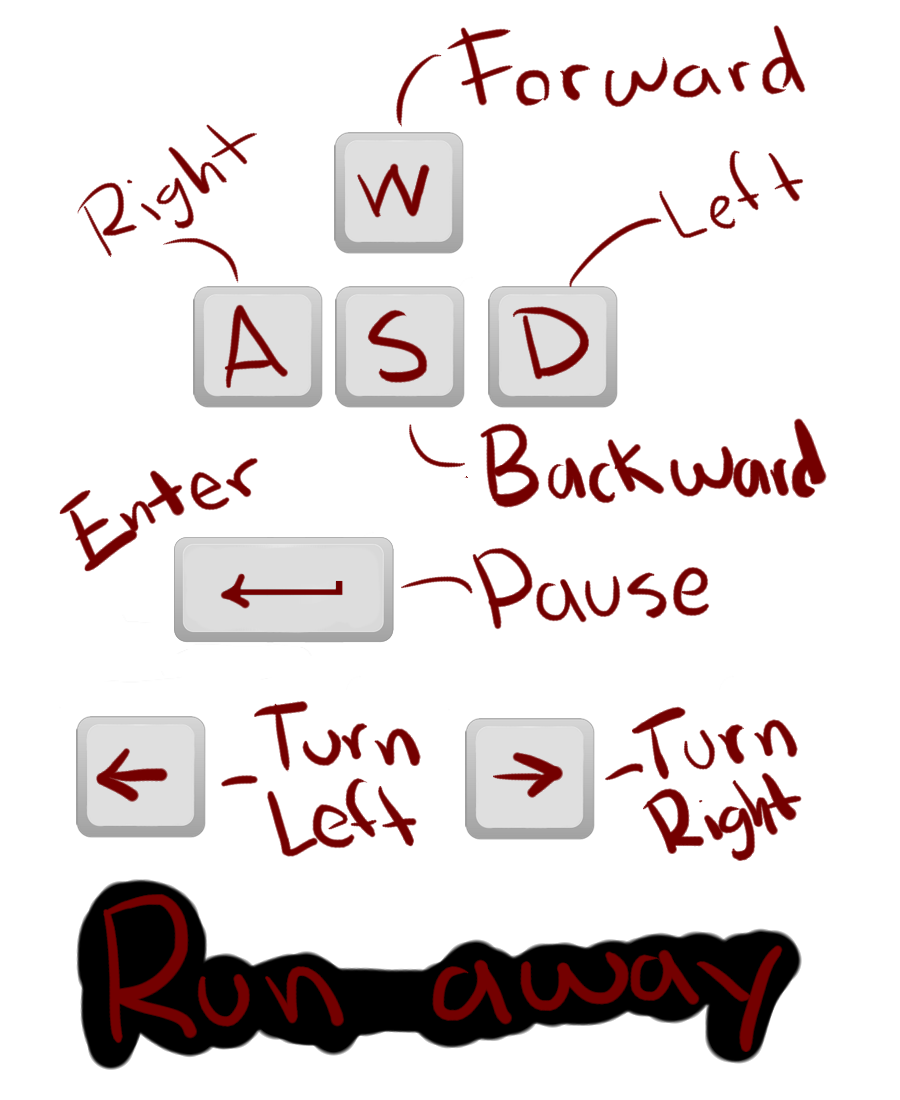 Forward
Right
W
Left
A S D
Backward
Enter
Pause
Turn
Left
Turn
Right
Run away